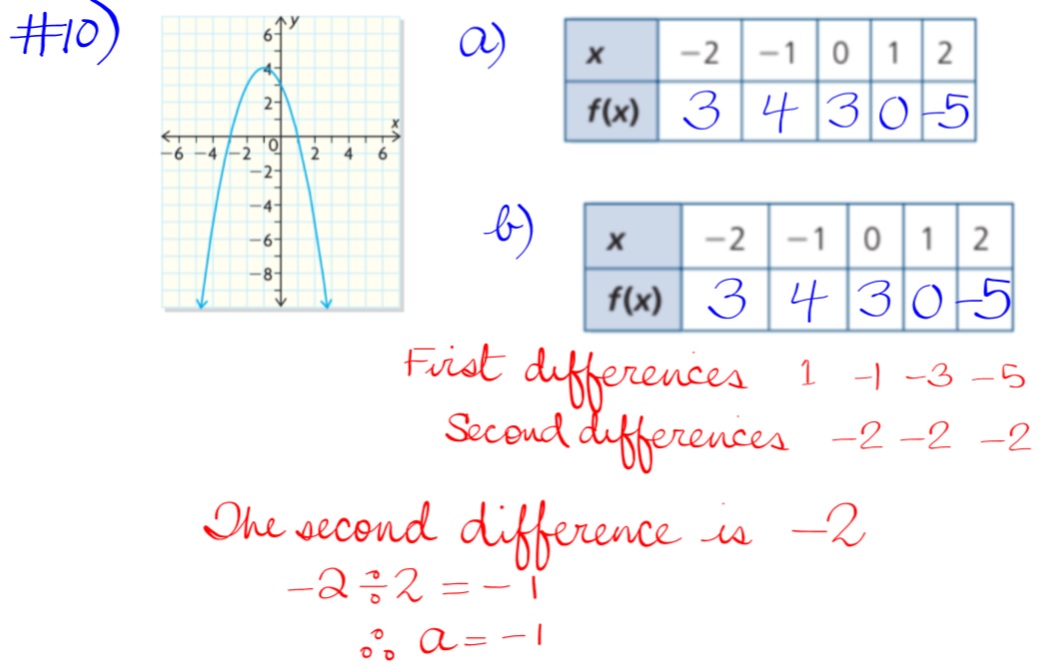 #10)
y
6
4
2
x
-6 -4 -2 0 2 4 6
-2
-4
-6
-8
a)
x -2 -1 0 1 2
f(x) 3 4 3 0 -5
b)
x -2 -1 0 1 2
f(x) 3 4 3 0 -5
First differences 1 -1 -3 -5
Second differences -2 -2 -2
The second difference is -2
-2 ÷ 2 = -1
∴ a = -1